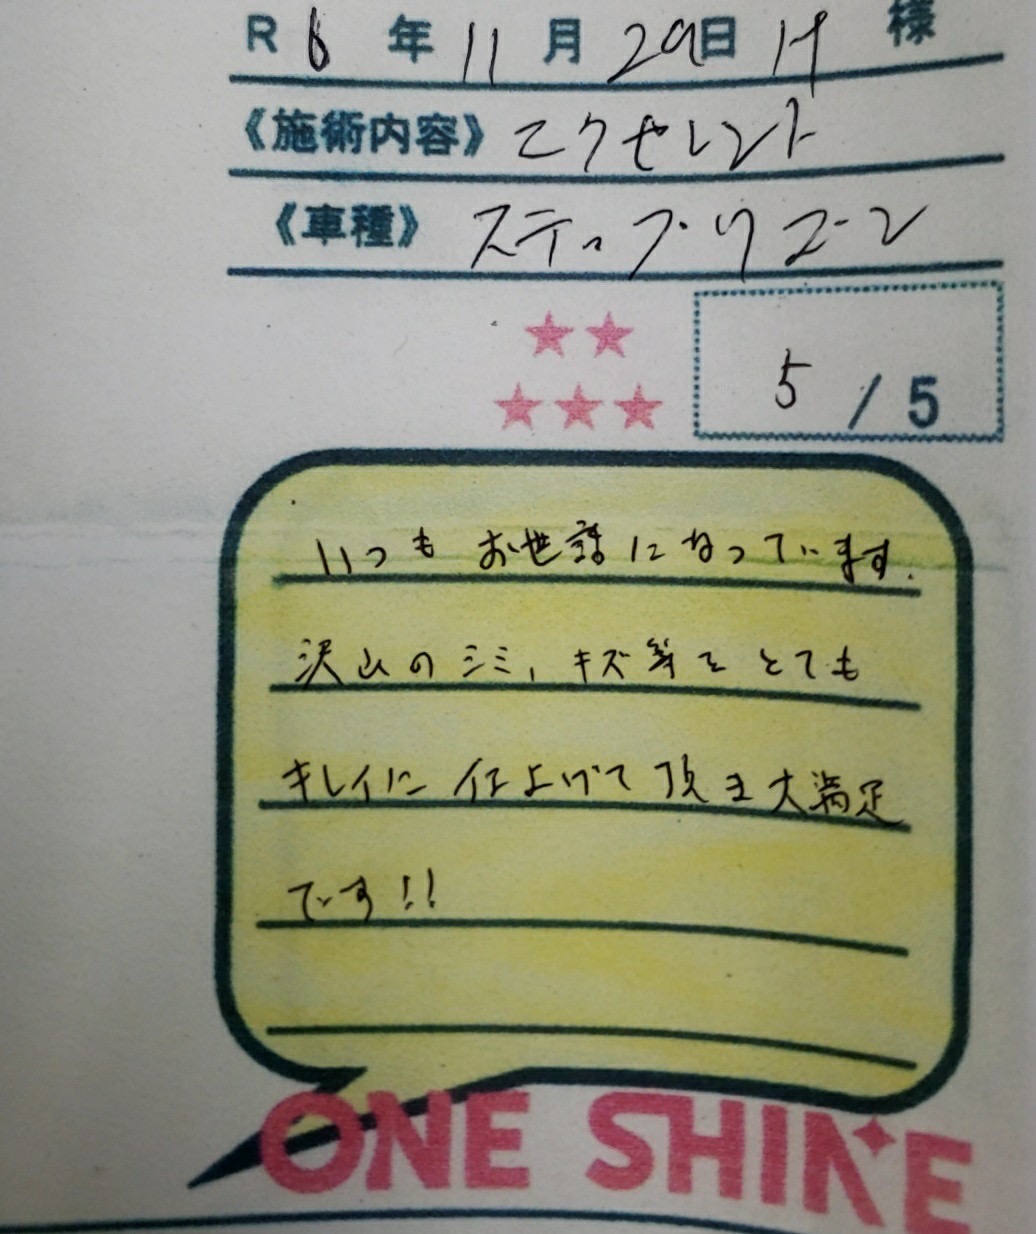 R6年11月29日 H 様
《施術内容》エクセレント
《車種》ステップワゴン
5/5
いつもお世話になっています.
沢山のシミ,キズ等をとても
キレイに仕上げて頂き大満足
です!!
ONE SHINE